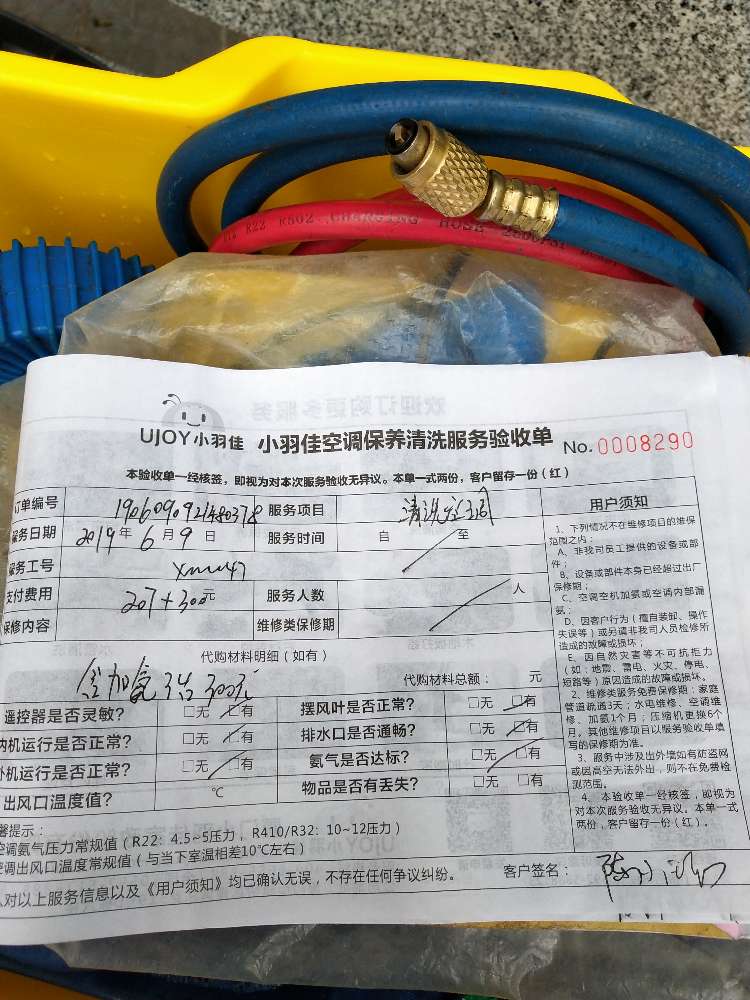 R22 R502 CHARGING HOSE
UJOY小羽佳 小羽佳空调保养清洗服务验收单 No. 0008290
本验收单一经核签，即视为对本次服务验收无异议。本单一式两份，客户留存一份（红）
订单编号 1906090921480378 服务项目 清洗空调
服务日期 2019年6月9日 服务时间 自 至
服务工号 Xmn47
支付费用 207+300元 服务人数 人
保修内容 维修类保修期
代购材料明细（如有）
加氨 300元 代购材料总额： 元
遥控器是否灵敏？ □无 □有 摆风叶是否正常？ □无 □有
内机运行是否正常？ □无 □有 排水口是否通畅？ □无 □有
外机运行是否正常？ □无 □有 氨气是否达标？ □无 □有
出风口温度值？ ℃ 物品是否有丢失？ □无 □有
用户须知
1、下列情况不在维修项目的维保
范围之内：
A、非我司员工提供的设备或部
件；
B、设备或部件本身已经超过出厂
保修期；
C、空调空机加氨或空调内部漏
氨；
D、因客户行为（擅自装卸、操作
失误等）或另请非我司人员检修所
造成的故障或损坏；
E、因自然灾害等不可抗拒力
（如：地震、雷电、火灾、停电、
短路等）原因造成的故障或损坏。
2、维修类服务免费保修期：家庭
管道疏通3天；水电维修、空调维
修、加氨1个月；压缩机更换6个
月。其他维修项目以服务验收单填
写的保修期为准。
3、服务中涉及出外墙如有防盗网
或因高空无法外出，则不在免费检
测范围。
4、本验收单一经核签，即视为
对本次服务验收无异议。本单一式
两份，客户留存一份（红）。
馨提示：
空调氨气压力常规值（R22：4.5~5压力，R410/R32：10~12压力）
空调出风口温度常规值（与当下室温相差10℃左右）
人对以上服务信息以及《用户须知》均已确认无误，不存在任何争议纠纷。 客户签名：